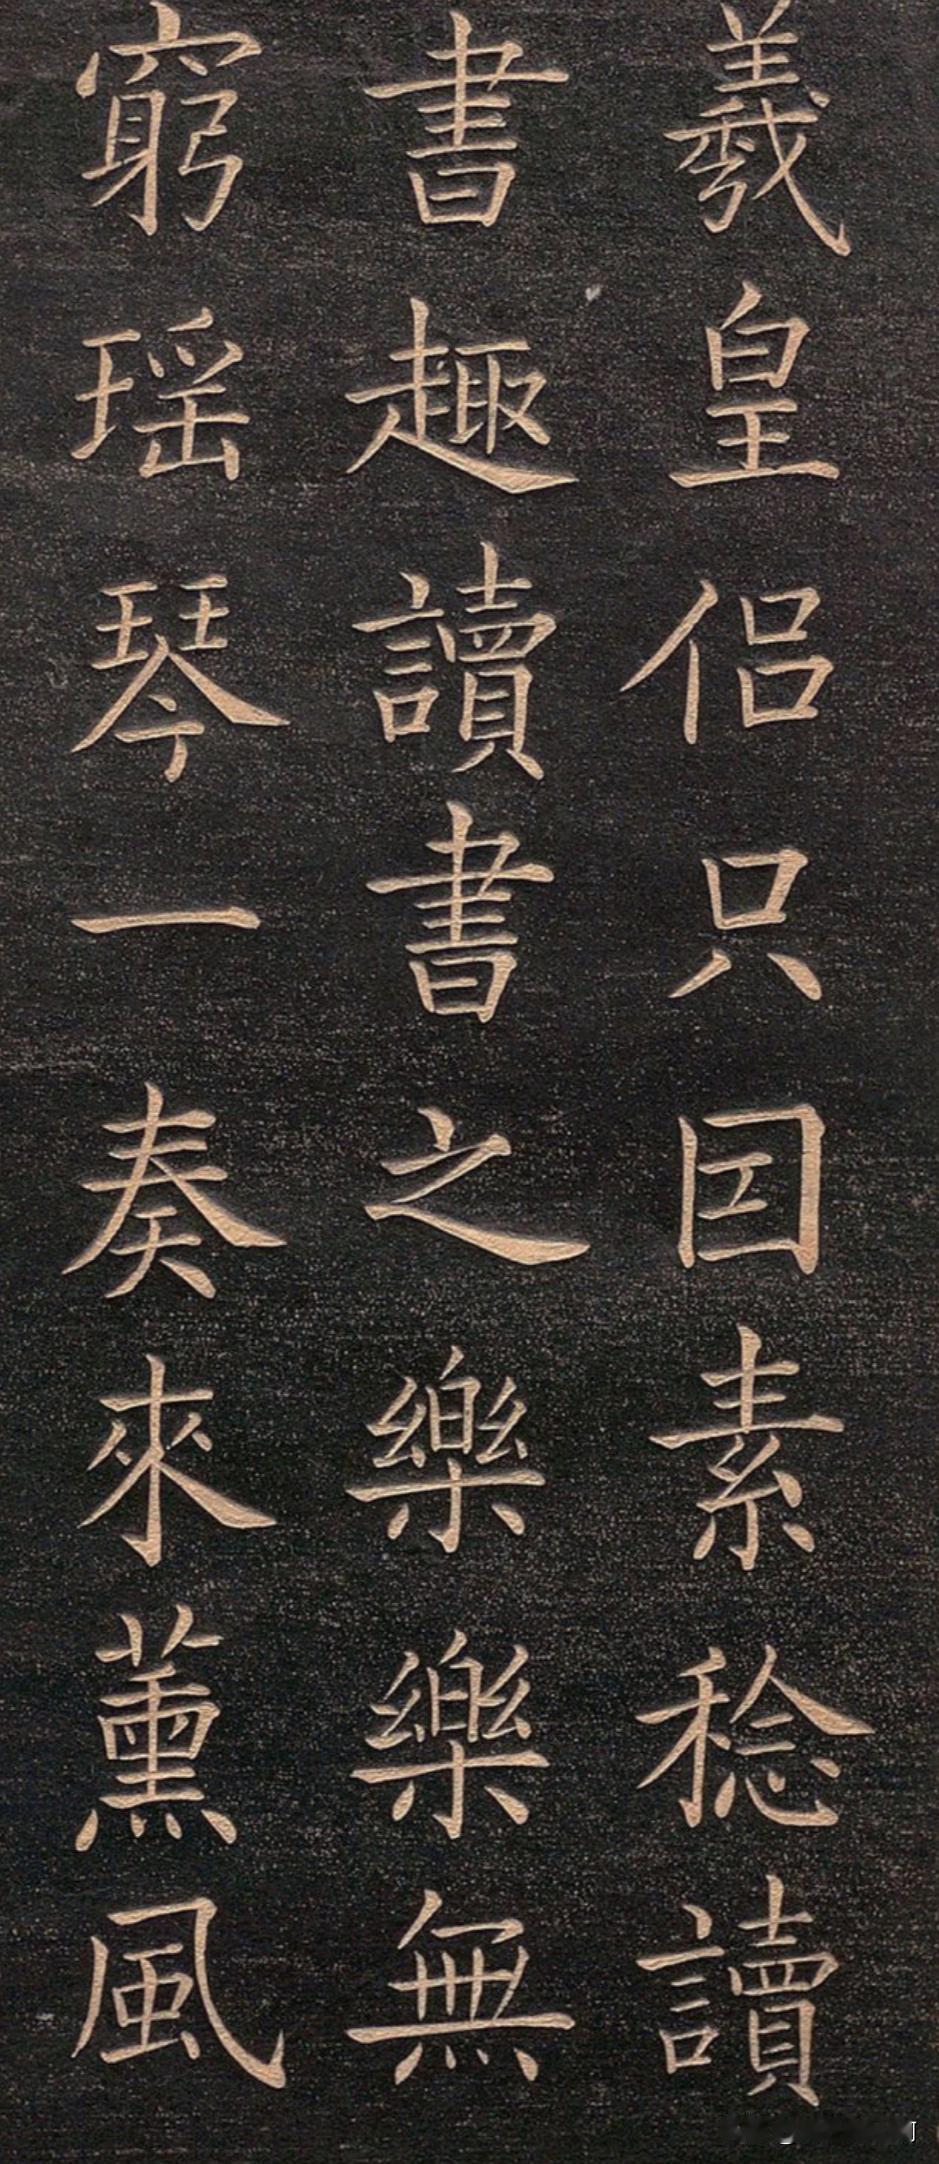 羲皇侣只因素稔讀
書趣讀書之樂樂無
窮瑶琴一奏來薰風